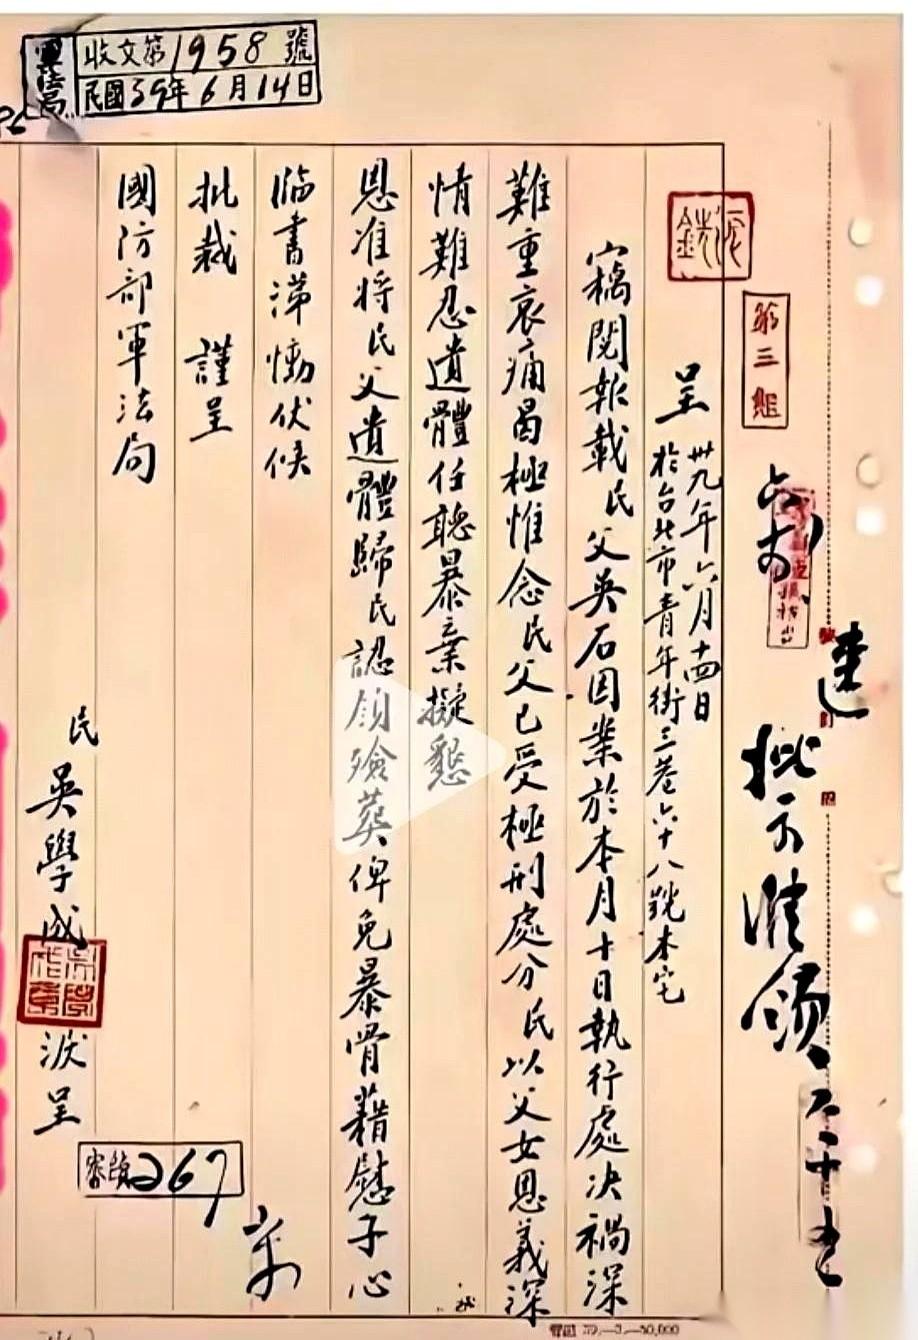 收文第1958號
民國39年6月14日
第三組
呈 卅九年六月十四日
於台北市青年街三巷六十八號本宅
竊閱報載民父吳石因業於本月十日執行處决禍深
難重哀痛曷極惟念民父已受極刑處分民以父女恩義深
情難忍遺體任聽暴棄擬懇
恩准將民父遺體歸民認領殮葬俾免暴骨藉慰子心
臨書涕慟伏候
批裁 謹呈
國防部軍法局
民 吳學成 淚呈
267
批示准領
六 十五